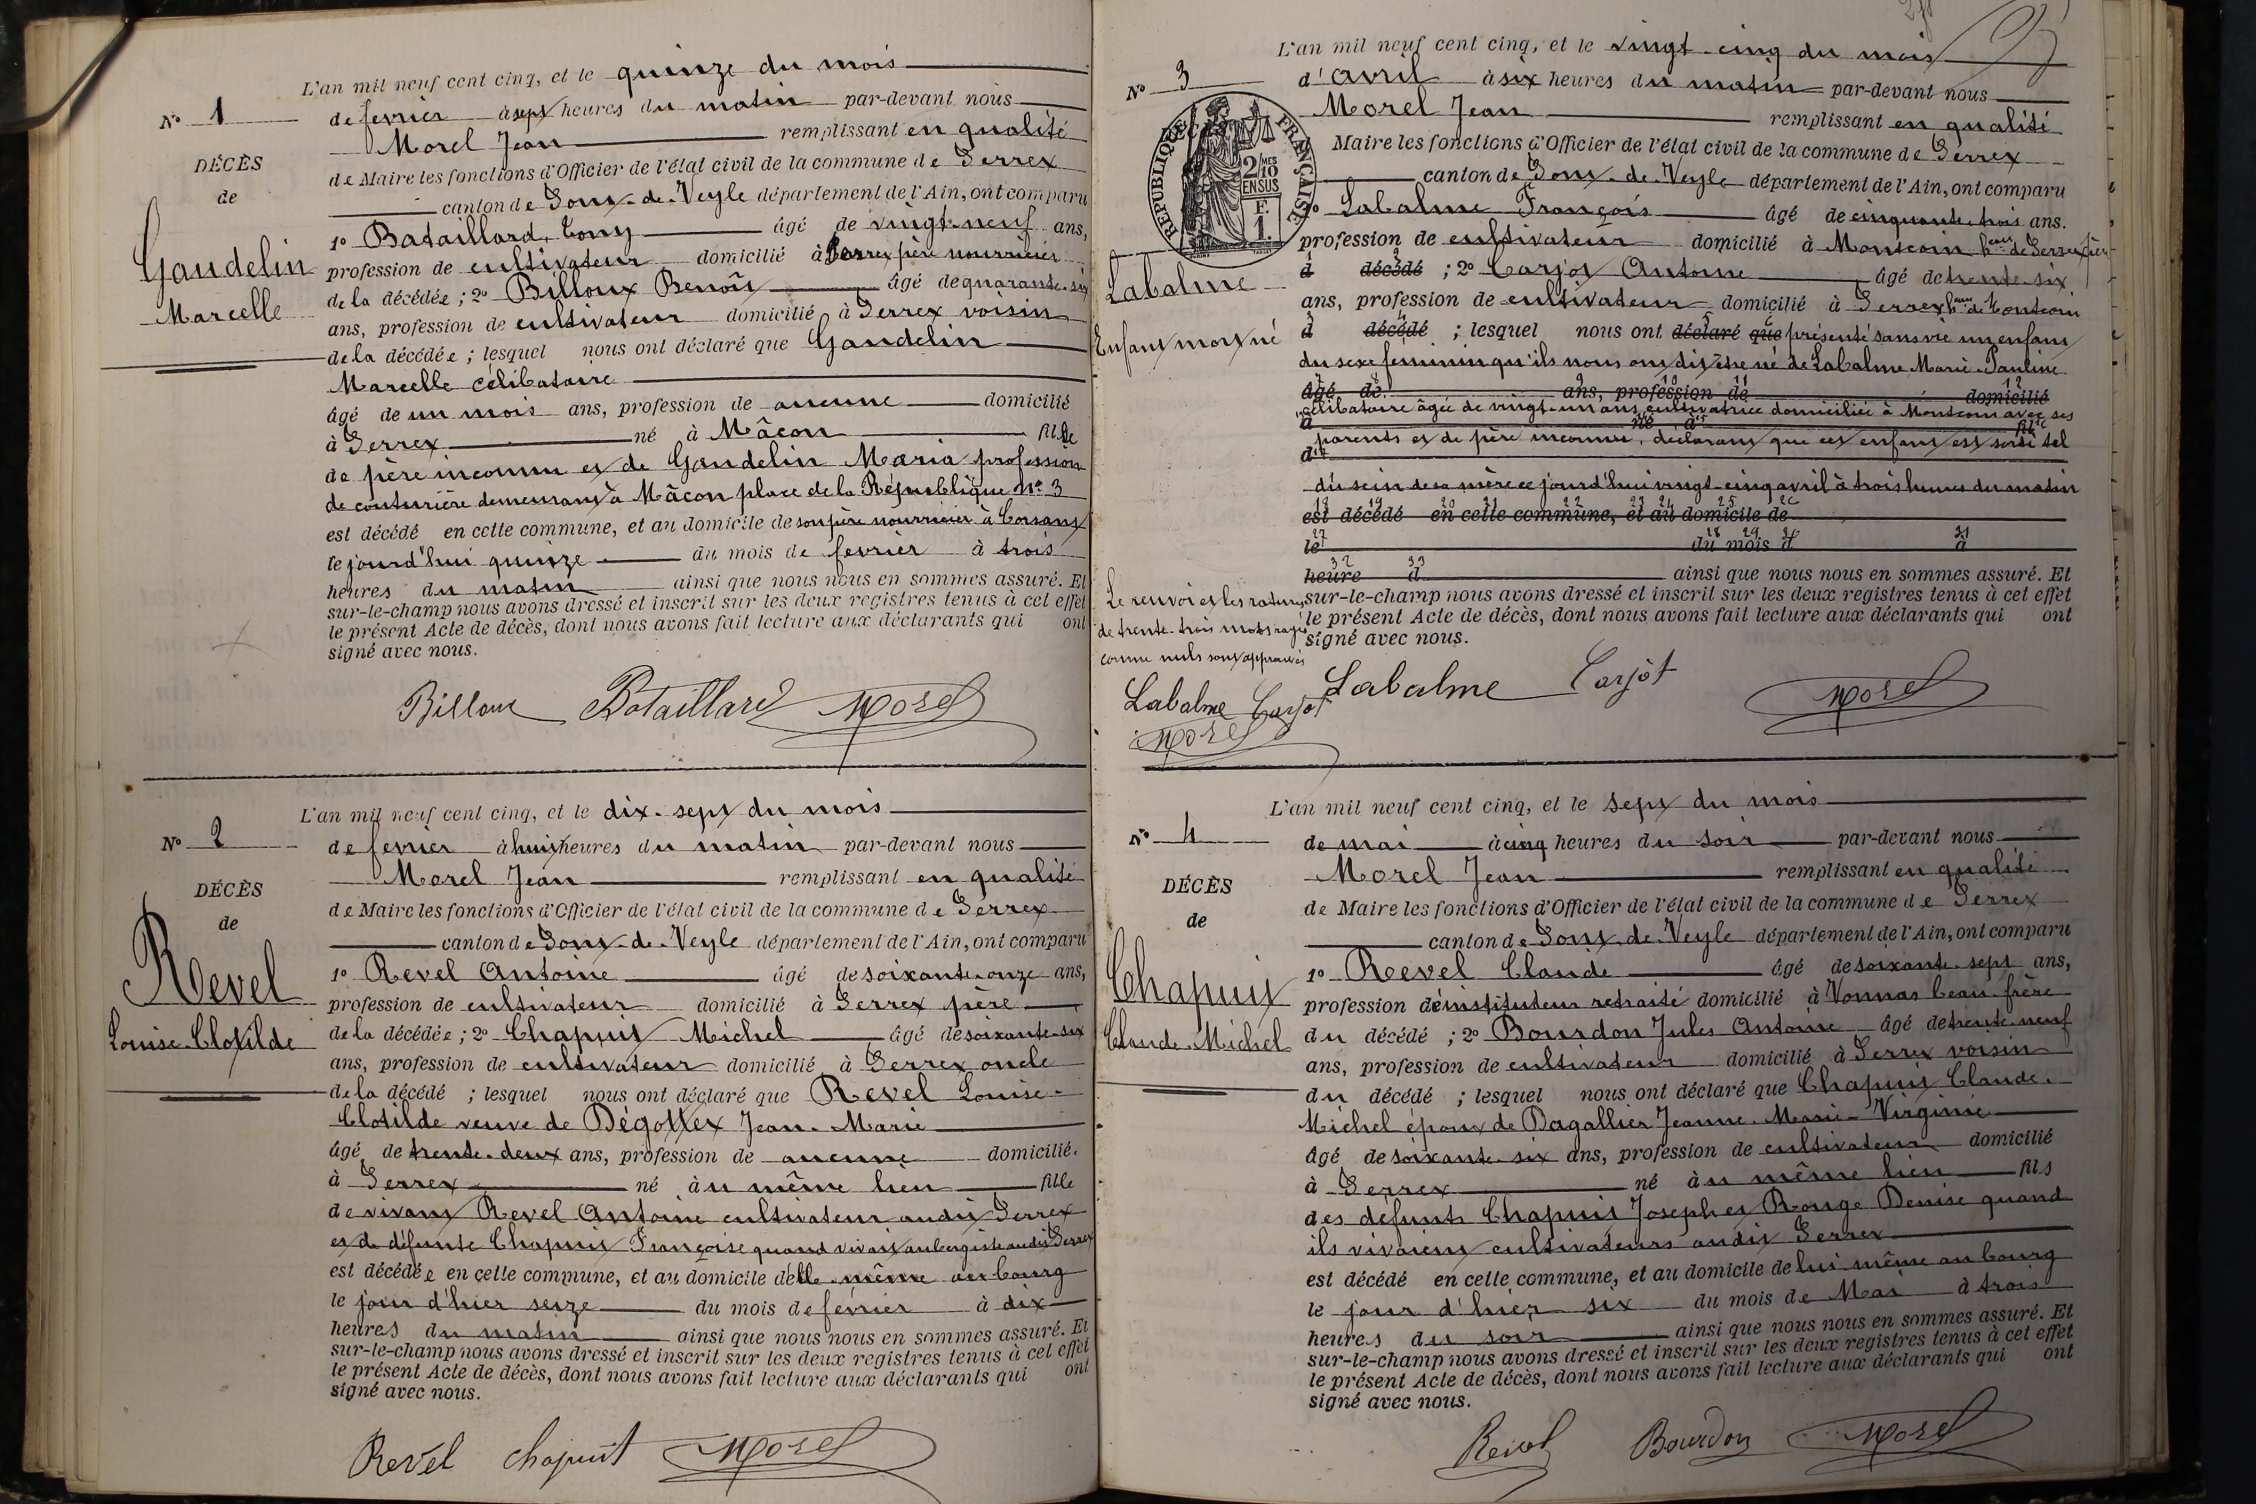 L'an mil neuf cent cinq, et le quinze du mois
N° 1
de fevrier à sept heures du matin par-devant nous
Morel Jean remplissant en qualité
DÉCÈS
de Maire les fonctions d'Officier de l'état civil de la commune de Perrex
de
canton de Pont-de-Veyle département de l'Ain, ont comparu
1° Bataillard Tony âgé de vingt-neuf ans,
Gandelin
profession de cultivateur domicilié à Perrex père nourricier
de la décédée ; 2° Billoux Benoît âgé de quarante-six
Marcelle
ans, profession de cultivateur domicilié à Perrex voisin
de la décédée ; lesquel nous ont déclaré que Gandelin
Marcelle célibataire
âgé de un mois ans, profession de aucune domicilié
à Perrex né à Mâcon fille
de père inconnu et de Gandelin Maria profession
de couturière demeurant à Mâcon place de la République n° 3
est décédé en cette commune, et au domicile de son père nourricier à
le jourd'hui quinze du mois de fevrier à trois
heures du matin ainsi que nous nous en sommes assuré. Et
sur-le-champ nous avons dressé et inscrit sur les deux registres tenus à cet effet
le présent Acte de décès, dont nous avons fait lecture aux déclarants qui ont
signé avec nous.
Billoux Bataillard Morel
L'an mil neuf cent cinq, et le dix-sept du mois
N° 2
de fevrier à huit heures du matin par-devant nous
Morel Jean remplissant en qualité
DÉCÈS
de Maire les fonctions d'Officier de l'état civil de la commune de Perrex
de
canton de Pont-de-Veyle département de l'Ain, ont comparu
1° Revel Antoine âgé de soixante-onze ans,
Revel
profession de cultivateur domicilié à Perrex père
Louise-Clotilde
de la décédée ; 2° Chapuis Michel âgé de soixante-six
ans, profession de cultivateur domicilié à Perrex oncle
de la décédé ; lesquel nous ont déclaré que Revel Louise-
Clotilde veuve de Dégottex Jean-Marie
âgé de trente-deux ans, profession de aucune domicilié
à Perrex né à u même lieu fille
de vivant Revel Antoine cultivateur audit Perrex
et de défunte Chapuis Françoise quand vivait aubergiste audit Perrex
est décédée en cette commune, et au domicile d'elle-même au bourg
le jour d'hier seize du mois de février à dix
heures du matin ainsi que nous nous en sommes assuré. Et
sur-le-champ nous avons dressé et inscrit sur les deux registres tenus à cet effet
le présent Acte de décès, dont nous avons fait lecture aux déclarants qui ont
signé avec nous.
Revel Chapuit Morel
L'an mil neuf cent cinq, et le vingt-cinq du mois
N° 3
d'avril à six heures du matin par-devant nous
Morel Jean remplissant en qualité
Maire les fonctions d'Officier de l'état civil de la commune de Perrex
RÉPUBLIQUE FRANÇAISE
2/10 MES EN SUS
F. 1.
canton de Pont-de-Veyle département de l'Ain, ont comparu
1° Labalme François âgé de cinquante-trois ans.
profession de cultivateur domicilié à Montcoin heau de Perrex père
d décédé ; 2° Carjot Antoine âgé de trente-six
Labalme
ans, profession de cultivateur domicilié à Perrex heau de Montcoin
d décédé ; lesquel nous ont déclaré que présenté sans vie un enfant
Enfant mort né
du sexe feminin qu'ils nous ont dit être né de Labalme Marie-Pauline
âgé de ans, profession de domicilié
célibataire âgée de vingt-un ans cultivatrice domiciliée à Montcoin avec ses
à né à fil
parents et de père inconnu, déclarant que cet enfant est sorti tel
d
du sein de sa mère ce jourd'hui vingt-cinq avril à trois heures du matin
est décédé en cette commune, et au domicile de
le du mois d à
heure d ainsi que nous nous en sommes assuré. Et
sur-le-champ nous avons dressé et inscrit sur les deux registres tenus à cet effet
le présent Acte de décès, dont nous avons fait lecture aux déclarants qui ont
signé avec nous.
Le renvoi et les ratures
de trente-trois mots rayés
comme nuls sont approuvés
Labalme Carjot
Morel
Labalme Carjot Morel
L'an mil neuf cent cinq, et le sept du mois
N° 4
de mai à cinq heures du soir par-devant nous
Morel Jean remplissant en qualité
DÉCÈS
de Maire les fonctions d'Officier de l'état civil de la commune de Perrex
de
canton de Pont-de-Veyle département de l'Ain, ont comparu
1° Revel Claude âgé de soixante-sept ans,
Chapuis
profession d'instituteur retraité domicilié à Vonnas beau-frère
Claude-Michel
du décédé ; 2° Bourdon Jules Antoine âgé de trente-neuf
ans, profession de cultivateur domicilié à Perrex voisin
du décédé ; lesquel nous ont déclaré que Chapuis Claude-
Michel époux de Dagallier Jeanne-Marie-Virginie
âgé de soixante-six ans, profession de cultivateur domicilié
à Perrex né à u même lieu fils
des défunts Chapuis Joseph et Rouge Denise quand
ils vivaient cultivateurs audit Perrex
est décédé en cette commune, et au domicile de lui-même au bourg
le jour d'hier six du mois de Mai à trois
heures du soir ainsi que nous nous en sommes assuré. Et
sur-le-champ nous avons dressé et inscrit sur les deux registres tenus à cet effet
le présent Acte de décès, dont nous avons fait lecture aux déclarants qui ont
signé avec nous.
Revel Bourdon Morel